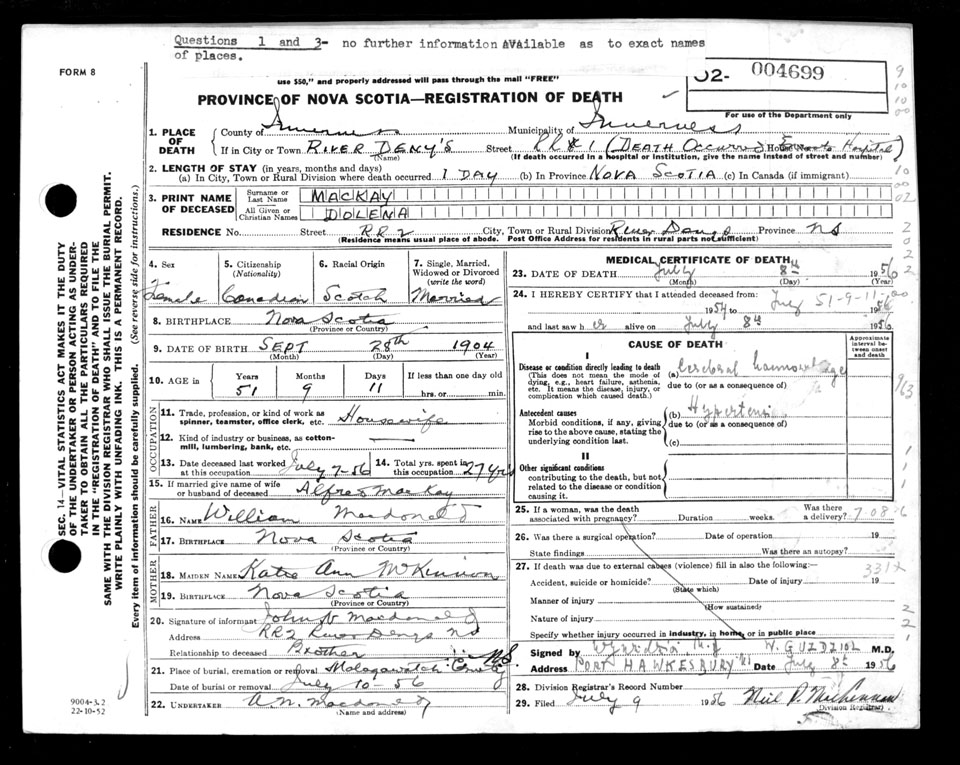 Questions 1 and 3- no further information AVAilable as to exact names
of places.
FORM 8
use $50," and properly addressed will pass through the mail "FREE"
004699
For use of the Department only
PROVINCE OF NOVA SCOTIA—REGISTRATION OF DEATH
1. PLACE OF DEATH
County of Inverness Municipality of Inverness
If in City or Town RIVER DENY'S Street RR#1 (DEATH OCCURRED Hospital)
(Name) (If death occurred in a hospital or institution, give the name instead of street and number)
2. LENGTH OF STAY (in years, months and days)
(a) In City, Town or Rural Division where death occurred 1 DAY (b) In Province NOVA SCOTIA (c) In Canada (if immigrant)
3. PRINT NAME OF DECEASED
Surname or Last Name MACKAY
All Given or Christian Names DOLENA
RESIDENCE No. Street RR2 City, Town or Rural Division River Denys Province NS
(Residence means usual place of abode. Post Office Address for residents in rural parts not sufficient)
4. Sex Female
5. Citizenship (Nationality) Canadian
6. Racial Origin Scotch
7. Single, Married, Widowed or Divorced (write the word) Married
8. BIRTHPLACE Nova Scotia
(Province or Country)
9. DATE OF BIRTH SEPT 28th 1904
(Month) (Day) (Year)
10. AGE in Years Months Days If less than one day old
51 9 11 hrs. or min.
OCCUPATION
11. Trade, profession, or kind of work as spinner, teamster, office clerk, etc. Housewife
12. Kind of industry or business, as cotton-mill, lumbering, bank, etc.
13. Date deceased last worked at this occupation July 7-56
14. Total yrs. spent in this occupation 27 yrs
15. If married give name of wife or husband of deceased Alfred MacKay
FATHER
16. NAME William Macdonald
17. BIRTHPLACE Nova Scotia
(Province or Country)
MOTHER
18. MAIDEN NAME Katie Ann McKinnon
19. BIRTHPLACE Nova Scotia
(Province or Country)
20. Signature of informant John Macdonald
Address RR2 River Denys NS
Relationship to deceased Brother
21. Place of burial, cremation or removal Malagawatch NS
Date of burial or removal July 10-56
22. UNDERTAKER A.N. Macdonald
(Name and address)
MEDICAL CERTIFICATE OF DEATH
23. DATE OF DEATH July 8th 1956
(Month) (Day) (Year)
24. I HEREBY CERTIFY that I attended deceased from: July 51-9-11
1954 to 1956
and last saw her alive on July 8th 1956
CAUSE OF DEATH
Approximate interval between onset and death
I
Disease or condition directly leading to death (a) Cerebral haemorrhage
(This does not mean the mode of dying, e.g., heart failure, asthenia, etc. It means the disease, injury, or complication which caused death.)
due to (or as a consequence of)
Antecedent causes (b) Hypertension
Morbid conditions, if any, giving rise to the above cause, stating the underlying condition last.
due to (or as a consequence of)
(c)
II
Other significant conditions contributing to the death, but not related to the disease or condition causing it.
25. If a woman, was the death associated with pregnancy? Duration weeks. Was there a delivery?
26. Was there a surgical operation? Date of operation 19
State findings Was there an autopsy?
27. If death was due to external causes (violence) fill in also the following:—
Accident, suicide or homicide? Date of injury 19
(State which)
Manner of injury
(How sustained)
Nature of injury
Specify whether injury occurred in industry, in home, or in public place
Signed by W. GUZDZIOL M.D.
Address PORT HAWKESBURY Date July 8th 1956
28. Division Registrar's Record Number
29. Filed July 9 1956 Neil P. MacLennan
(Division Registrar)
SEC. 14—VITAL STATISTICS ACT MAKES IT THE DUTY
OF THE UNDERTAKER OR PERSON ACTING AS UNDER-
TAKER TO OBTAIN ALL THE PARTICULARS REQUIRED
IN THE "REGISTRATION OF DEATH" AND TO FILE THE
SAME WITH THE DIVISION REGISTRAR WHO SHALL ISSUE THE BURIAL PERMIT.
WRITE PLAINLY WITH UNFADING INK. THIS IS A PERMANENT RECORD.
Every item of information should be carefully supplied. (See reverse side for instructions.)
9004-3.2
22-10-52